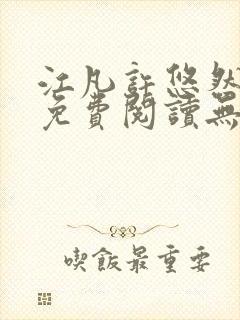 江凡許悠然
免費閱讀無
喫飯最重要